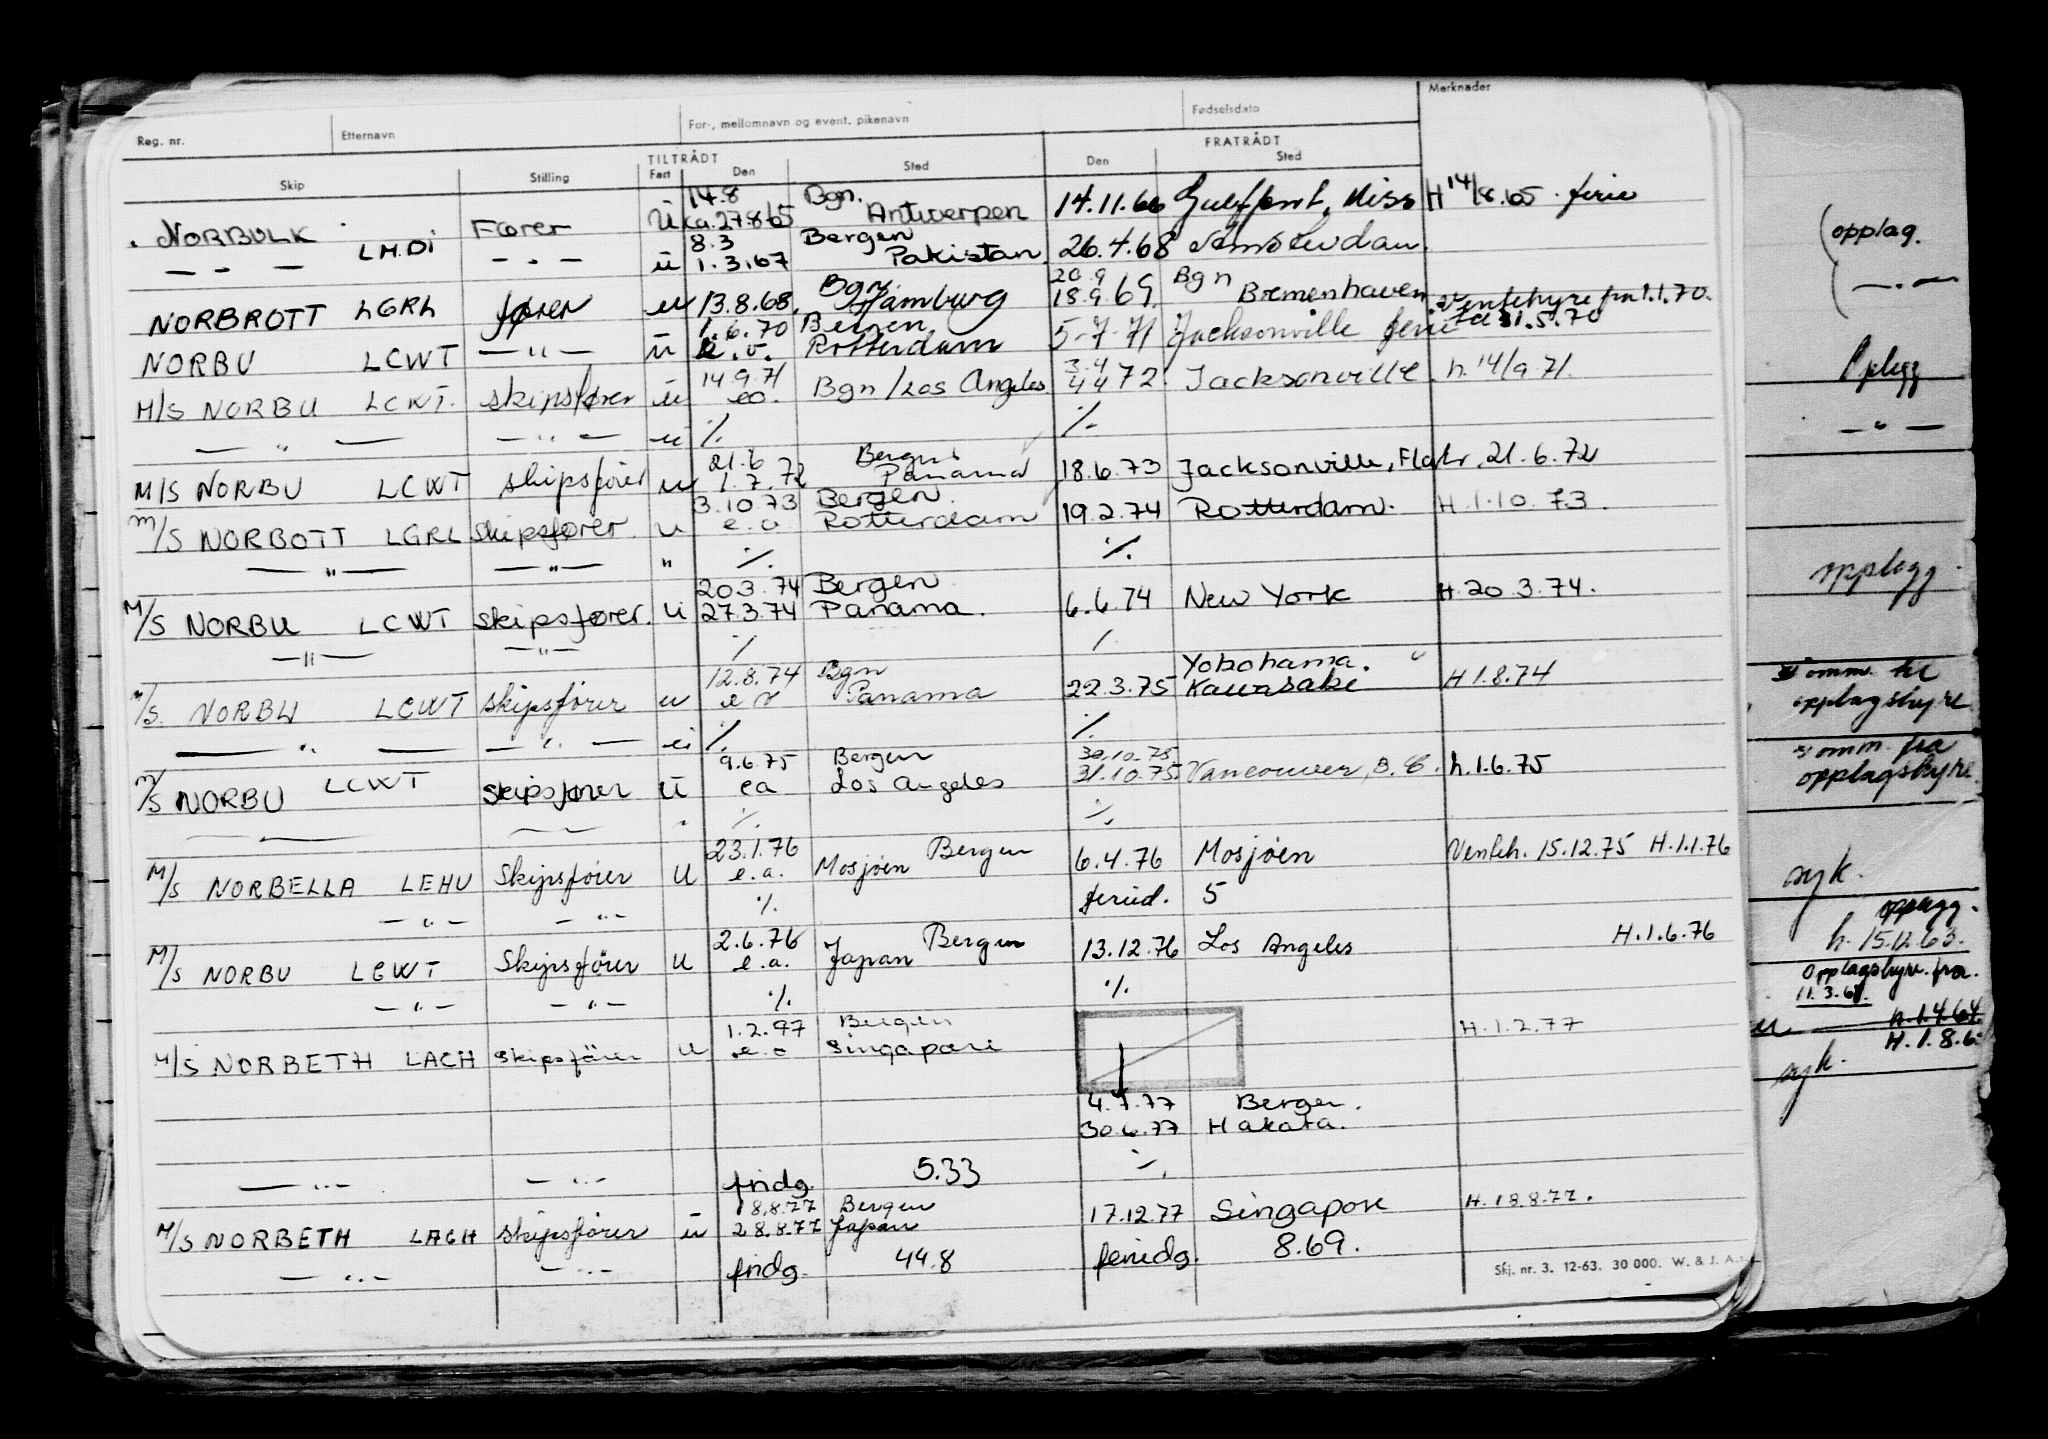 Reg. nr. Etternavn For-, mellomnavn og event. pikenavn Fødselsdato Merknader
TILTRÅDT FRATRÅDT
Skip Stilling Fart Den Sted Den Sted
14.8 Bgn.
NORBULK Fører U ca. 27.8.65 Antwerpen 14.11.66 Gulfport, Miss H 14/8.65. ferie
8.3 Bergen
— " — LHDI — " — u 1.3.67 Pakistan 26.4.68 Amsterdam.
Bgn. 20.9 Bgn
NORBROTT LGRL fører u 13.8.68. Hamburg 18.9.69 Bremenhaven Ventehyre fra 1.1.70.
1.6.70 Bergen til 31.5.70
NORBU LCWT — " — u e.o. Rotterdam 5-7-71 Jacksonville ferie
14.9.71 3.4
M/S NORBU LCWT. skipsfører u eo. Bgn/Los Angeles 4.4 72 Jacksonville. h. 14/9.71.
— " — — " — u ·/. ·/.
21.6 Bergen
M/S NORBU LCWT skipsfører u 1.7.72 Panama 18.6.73 Jacksonville, Fla h. 21.6.72
3.10.73 Bergen
M/S NORBOTT LGRL skipsfører. u e.o. Rotterdam 19.2.74 Rotterdam. H.1.10.73.
— " — — " — " ·/. ·/.
20.3.74 Bergen
M/S NORBU LCWT skipsfører. u 27.3.74 Panama. 6.6.74 New York H.20.3.74.
— " — — " — ·/. ·/.
12.8.74 Bgn Yokohama.
M/S. NORBU LCWT skipsfører u e o Panama 22.3.75 Kawasaki H 1.8.74
— " — — " — u ·/. ·/.
9.6.75 Bergen 30.10.75
M/S NORBU LCWT skipsfører u ea Los Angeles 31.10.75. Vancouver, B.C. h.1.6.75
— — " ·/. ·/.
23.1.76 Bergen
M/S NORBELLA LEHU Skipsfører u e.a. Mosjøen 6.4.76 Mosjøen Venteh. 15.12.75 H.1.1.76
— " — — " — ·/. feried. 5
2.6.76 Bergen
M/S NORBU LCWT Skipsfører u e.a. Japan 13.12.76 Los Angeles H.1.6.76
— " — — " — ·/. ·/.
1.2.77 Bergen
M/S NORBETH LACH skipsfører u e.o Singapore H.1.2.77
4.7.77 Bergen.
30.6.77 Hakata.
— " — — " — fridg. 5.33 ·/.
18.8.77 Bergen
M/S NORBETH LACH skipsfører u 28.8.77 Japan 17.12.77 Singapore H.18.8.77.
— " — — " — fridg. 44.8 feriedg. 8.69.
Skj. nr. 3. 12-63. 30 000. W. & J. A.
opplag.
— " —
Oplegg
— " —
opplagg.
omm. til
opplagshyre
omm. fra
opplagshyre.
syk.
opplegg.
h. 15.12.63.
Opplagshyre. fra.
11.3.64.
h. 1.4.64.
H. 1.8.6
syk.